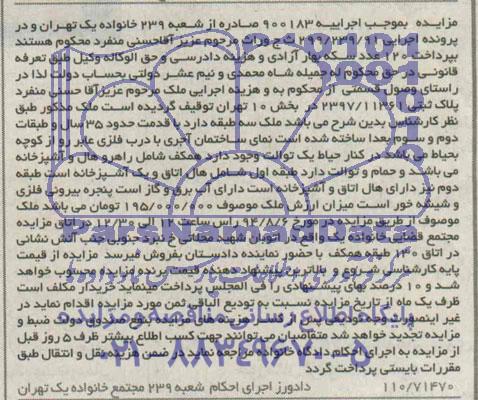 مزایده بموجب اجراییه ۹۰۰۱۸۳ صادره از شعبه ۲۳۹ خانواده یک تهران و در
پرونده اجرایی ۲۹۹/۲۳۹/۹۱ ث ج وراث مرحوم عزیز آقاحسنی منفرد محکوم هستند
بپرداخت ۱۲۰ عدد سکه بهار آزادی و هزینه دادرسی و حق الوکاله وکیل طبق تعرفه
قانونی در حق محکوم له جمیله شاه محمدی و نیم عشر دولتی بحساب دولت لذا در
راستای وصول قسمتی از محکوم به و هزینه اجرایی ملک مرحوم عزیز آقا حسنی منفرد
پلاک ثبتی ۲۳۹۷/۱۱۳۶۹ در بخش ۱۰ تهران توقیف گردیده است ملک مذکور طبق
نظر کارشناس بدین شرح می باشد ملک سه طبقه دارد با قدمت حدود ۳۵ سال و طبقات
دوم و سوم بعدا ساخته شده است نمای ساختمان آجری با درب فلزی عابر رو از کوچه
بحیاط می باشد در کنار حیاط یک توالت وجود دارد همکف شامل راهرو هال و آشپزخانه
می باشد و حمام و توالت دارد طبقه اول شامل هال و اتاق و آشپزخانه است طبقه
دوم نیز دارای هال اتاق و آشپزخانه است دارای آب برق و گاز است پنجره بیرونی فلزی
و شیشه خور است میزان ارزش ملک موصوف ۱۹۵/۰۰۰/۰۰۰ تومان می باشد ملک
موصوف از طریق مزایده در مورخ ۹۴/۸/۶ راس ساعت ۱۲ الی ۱۲/۳۰ در اتاق مزایده
مجتمع قضایی خانواده یک واقع در اتوبان شهید محلاتی خ نبرد جنوبی جنب آتش نشانی
در اتاق ۱۳۰ طبقه همکف با حضور نماینده دادستان بفروش میرسد مزایده از قیمت
پایه کارشناسی شروع و بالاترین پیشنهاد دهنده قیمت برنده مزایده محسوب خواهد
شد و ۱۰ درصد بهای پیشنهادی را فی المجلس پرداخت مینماید خریدار مکلف است
ظرف یک ماه از تاریخ مزایده نسبت به تودیع الباقی ثمن مورد مزایده اقدام نماید در
غیر اینصورت وجه تودیعی پس از کسر هزینه های مزایده بنفع صندوق دولت ضبط و
مزایده تجدید خواهد شد متقاضیان می توانند جهت کسب اطلاع بیشتر ظرف ۵ روز قبل
از مزایده به اجرای احکام دادگاه خانواده مراجعه نماید در ضمن هزینه نقل و انتقال طبق
مقررات بایستی پرداخت گردد
۱۱۰/۷۱۴۷۰ دادورز اجرای احکام شعبه ۲۳۹ مجتمع خانواده یک تهران
ParsNamadData
پایگاه اطلاع رسانی مناقصه و مزایده
۰۲۱-۸۸۳۴۹۶۷۰-۵